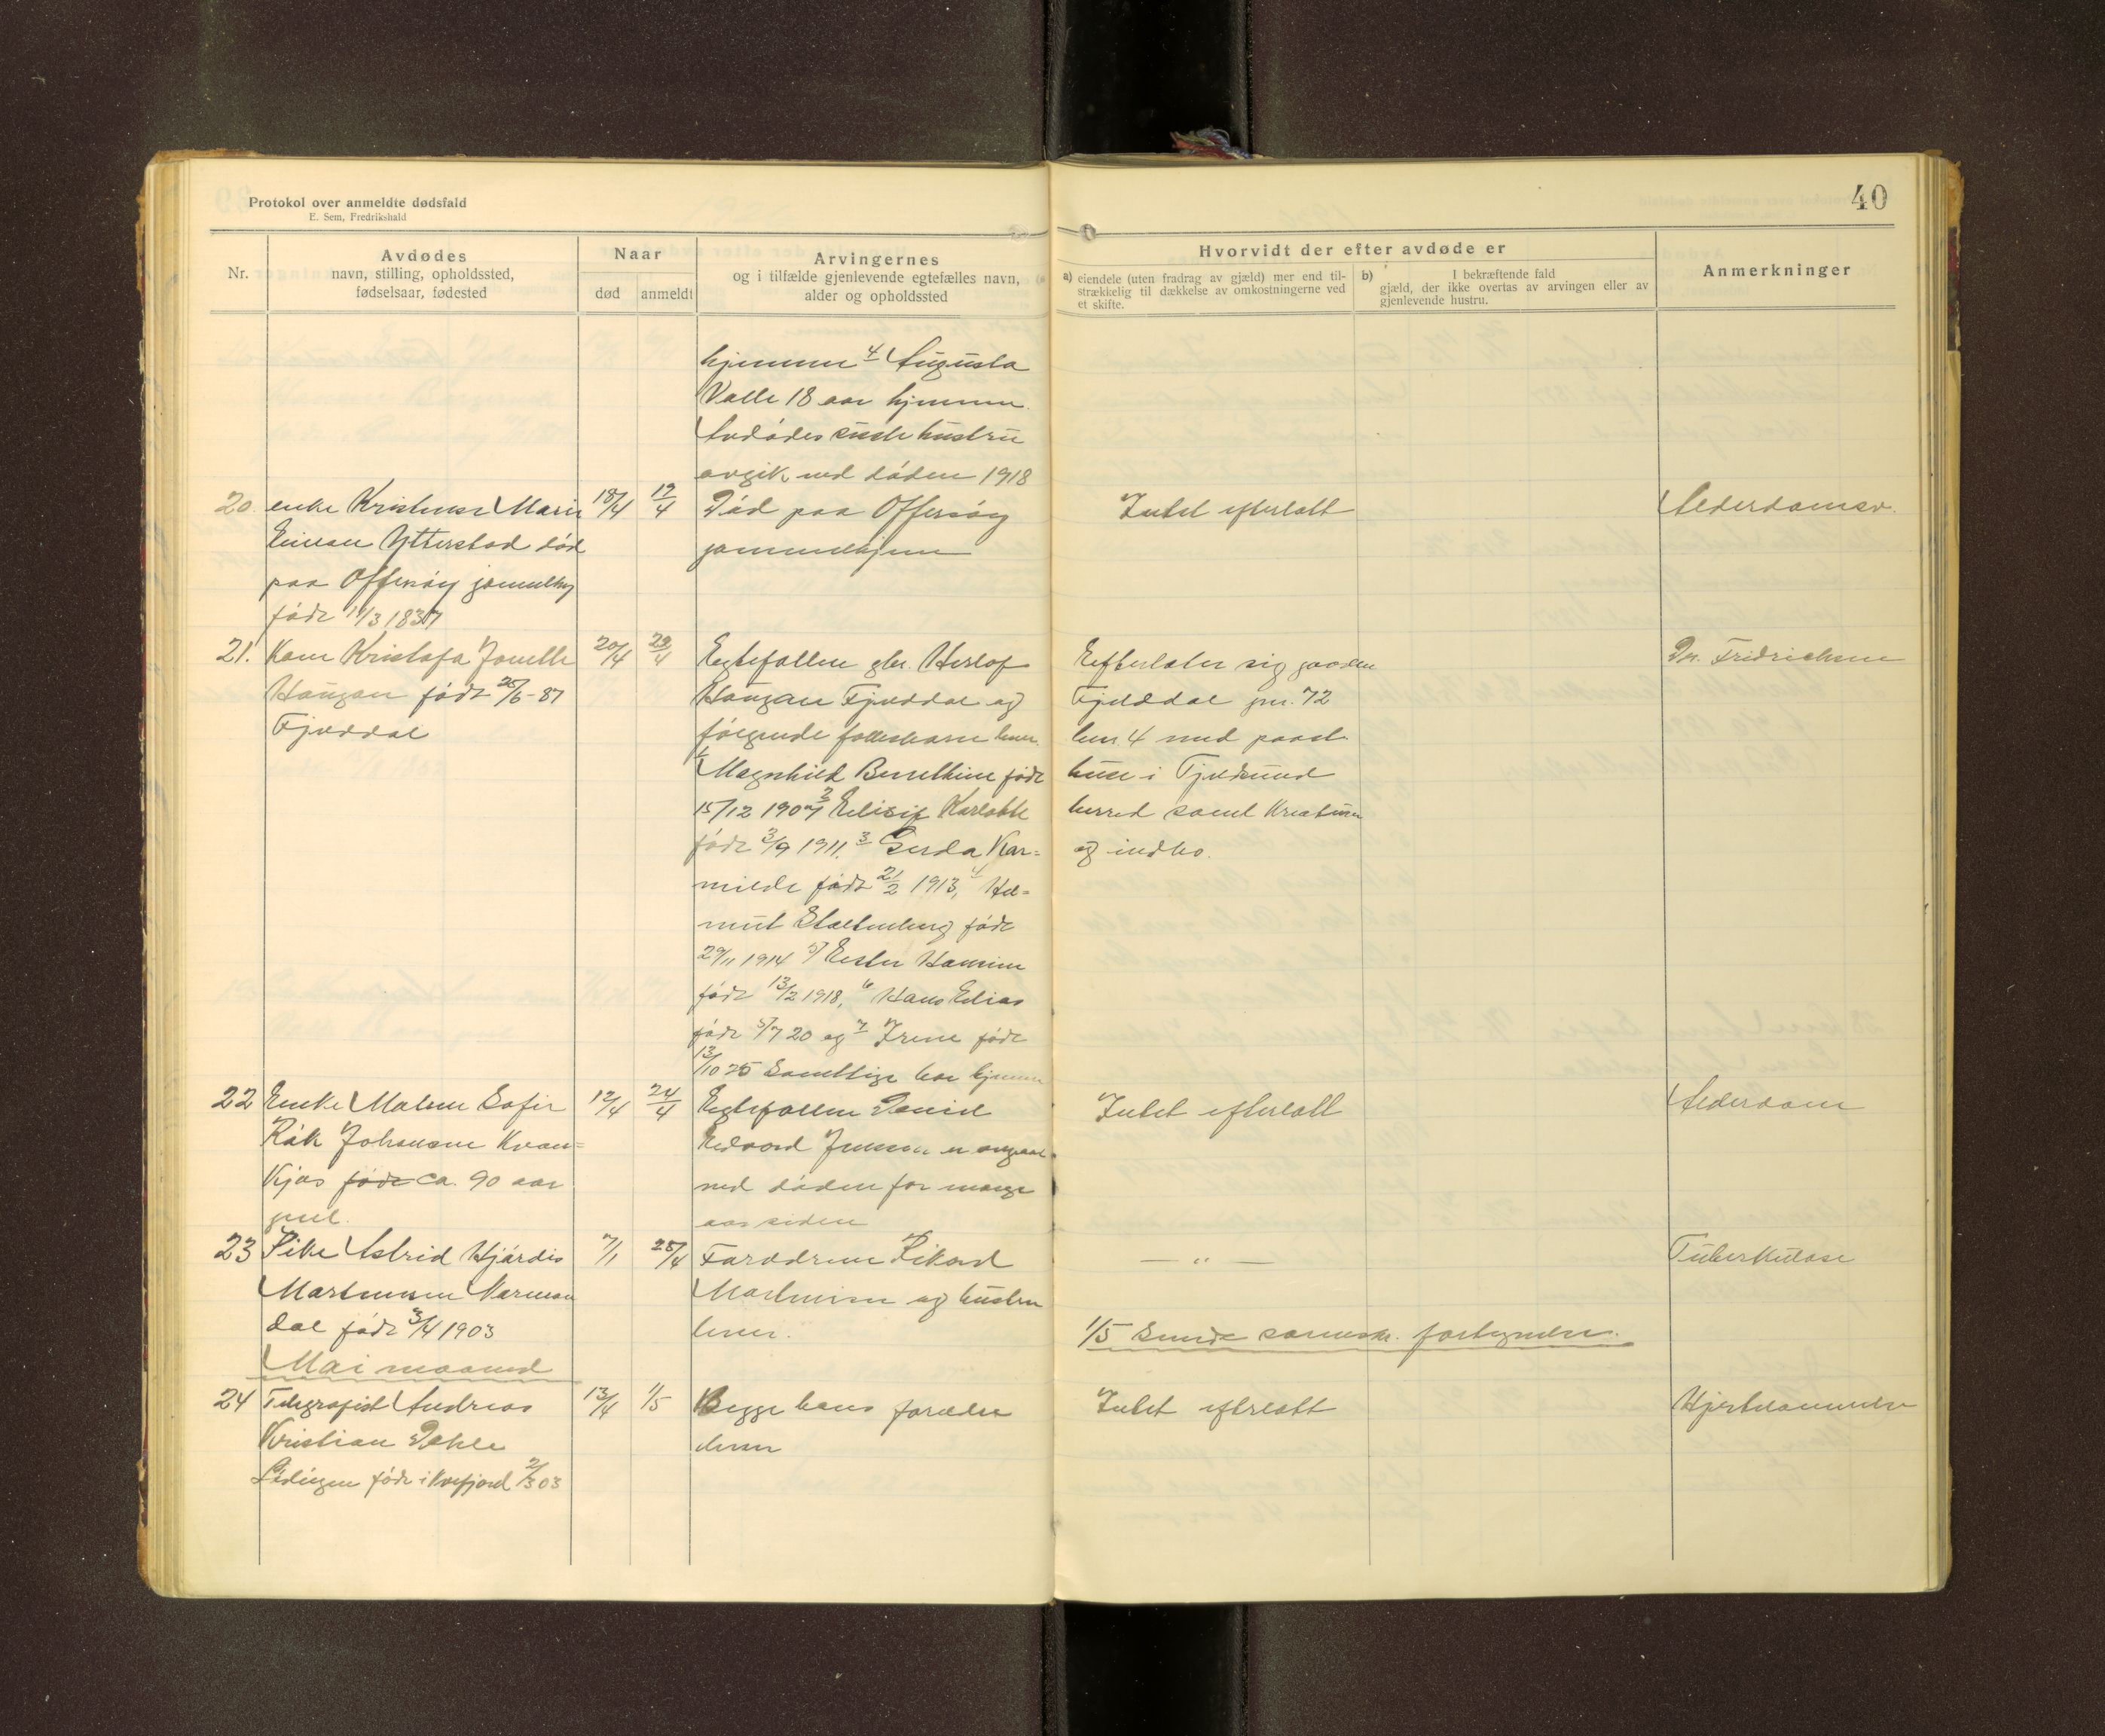 Protokol over anmeldte dødsfald
E. Sem, Fredrikshald
40
Nr.
Avdødes
navn, stilling, opholdssted,
fødselsaar, fødested
Naar
død
anmeldt
Arvingernes
og i tilfælde gjenlevende egtefælles navn,
alder og opholdssted
Hvorvidt der efter avdøde er
a) eiendele (uten fradrag av gjæld) mer end til-
strækkelig til dækkelse av omkostningerne ved
et skifte.
b) I bekræftende fald
gjæld, der ikke overtas av arvingen eller av
gjenlevende hustru.
Anmerkninger
hjemme 4 Augusta
Valle 18 aar hjemme.
Avdødes sidste hustru
avgik ved døden 1918
20. enke Kristense Marie 18/4 19/4 Død paa Offersøy Intet efterlatt Alderdomssv.
Ytterstad død gammelhjem
paa Offersøy gammelhj
født 11/3 1837
21. Kone Kristofa Jonette 20/4 29/4 Egtefællen gbr. Herlof Efterlater sig gaarden Dr. Fridrichsen
Haugan født 25/6-87 Haugan Fjelddal og Fjelddal gnr. 72
Fjelddal følgende fællesbarn lever. bnr. 4 med paast.
1 Magnhild Berethine født huse i Tjeldsund
15/12 1907 2 Edisif Karlotte herred samt kreaturer
født 3/9 1911. 3 Gerda Kar- og indbo.
milde født 21/2 1913, 4 Hel-
mut Stoltenberg født
29/11 1914 5 Ester Hansine
født 13/2 1918, 6 Hans Edias
født 5/7 20 og 7 Irene født
13/10 25 Samtlige bor hjemme
22 Enke Malene Sofie 12/4 24/4 Egtefællen Daniel Intet efterlatt Alderdom
Røk Johansen Kvan- Edvard Jensen er avgaat
Kjøs født ca. 90 aar ved døden for mange
gml. aar siden
23 Pike Astrid Hjørdis 7/1 25/4 Forældrene Rikard — " — Tuberkulose
Martinsen Narman Martinsen og hustru
dal født 3/4 1903 lever.
1/5 Sendt sorensk. fortegnelse.
Mai maaned
24 Telegrafist Andreas 13/4 1/5 Begge hans forældre Intet efterlatt Hjertelammelse
Kristian Dahle lever
Lødingen født i Kvæfjord 2/3 03